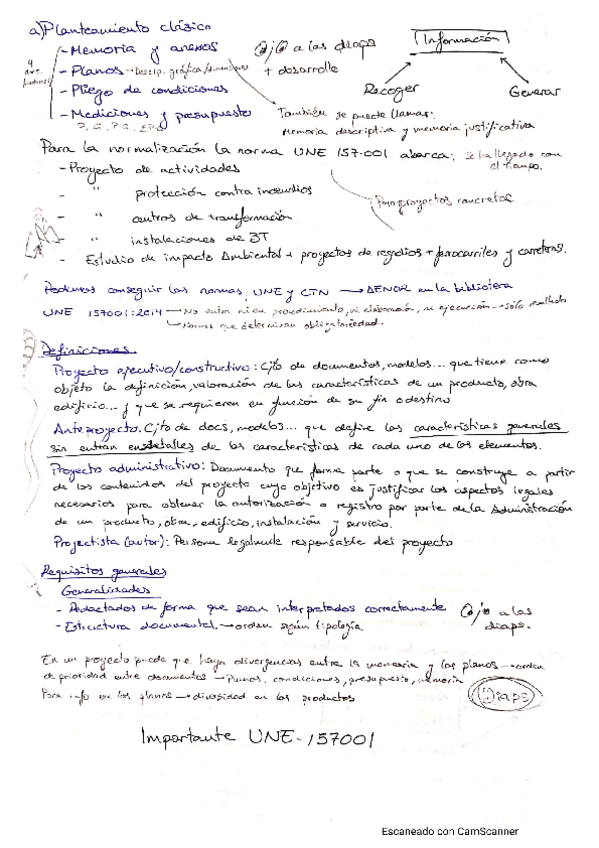 a) Planteamiento clásico
- Memoria y anexos
- Planos → Descrip. gráfica/dimensiones
- Pliego de condiciones
- Mediciones y presupuesto
a las diaps
+ desarrollo
Información
Recoger
Generar
También se puede llamar:
Memoria descriptiva y memoria justificativa
Para la normalización la norma UNE 157.001 abarca: Se ha llegado con el tiempo.
- Proyecto de actividades
- " protección contra incendios
- " centros de transformación
- " instalaciones de BT
- Estudio de impacto Ambiental + proyectos de regadios + ferrocarriles y carreteras.
Para proyectos concretos
Podemos conseguir las normas UNE y CTN → AENOR en la biblioteca
UNE 157001:2014 → No entra ni en procedimiento, ni elaboración, ni ejecución → sólo resultado
→ Normas que determinan obligatoriedad.
Definiciones
Proyecto ejecutivo/constructivo: Cjto de documentos, modelos... que tiene como
objeto la definición, valoración de las características de un producto, obra
edificio... y que se requieren en función de su fin o destino
Anteproyecto. Cjto de docs, modelos... que define las características generales
sin entrar en detalles de las características de cada uno de los elementos.
Proyecto administrativo: Documento que forma parte o que se construye a partir
de los contenidos del proyecto cuyo objetivo es justificar los aspectos legales
necesarios para obtener la autorización o registro por parte de la Administración
de un producto, obra, edificio, instalación y servicio.
Projectista (autor): Persona legalmente responsable del proyecto
Requisitos generales
Generalidades
- Redactados de forma que sean interpretados correctamente
- Estructura documental → orden según tipología
a las diaps.
En un proyecto puede que haya divergencias entre la memoria y los planos → orden
de prioridad entre documentos → Planos, condiciones, presupuesto, memoria
Para info en los planos → diversidad en los productos
Diaps
Importante UNE-157001
Escaneado con CamScanner